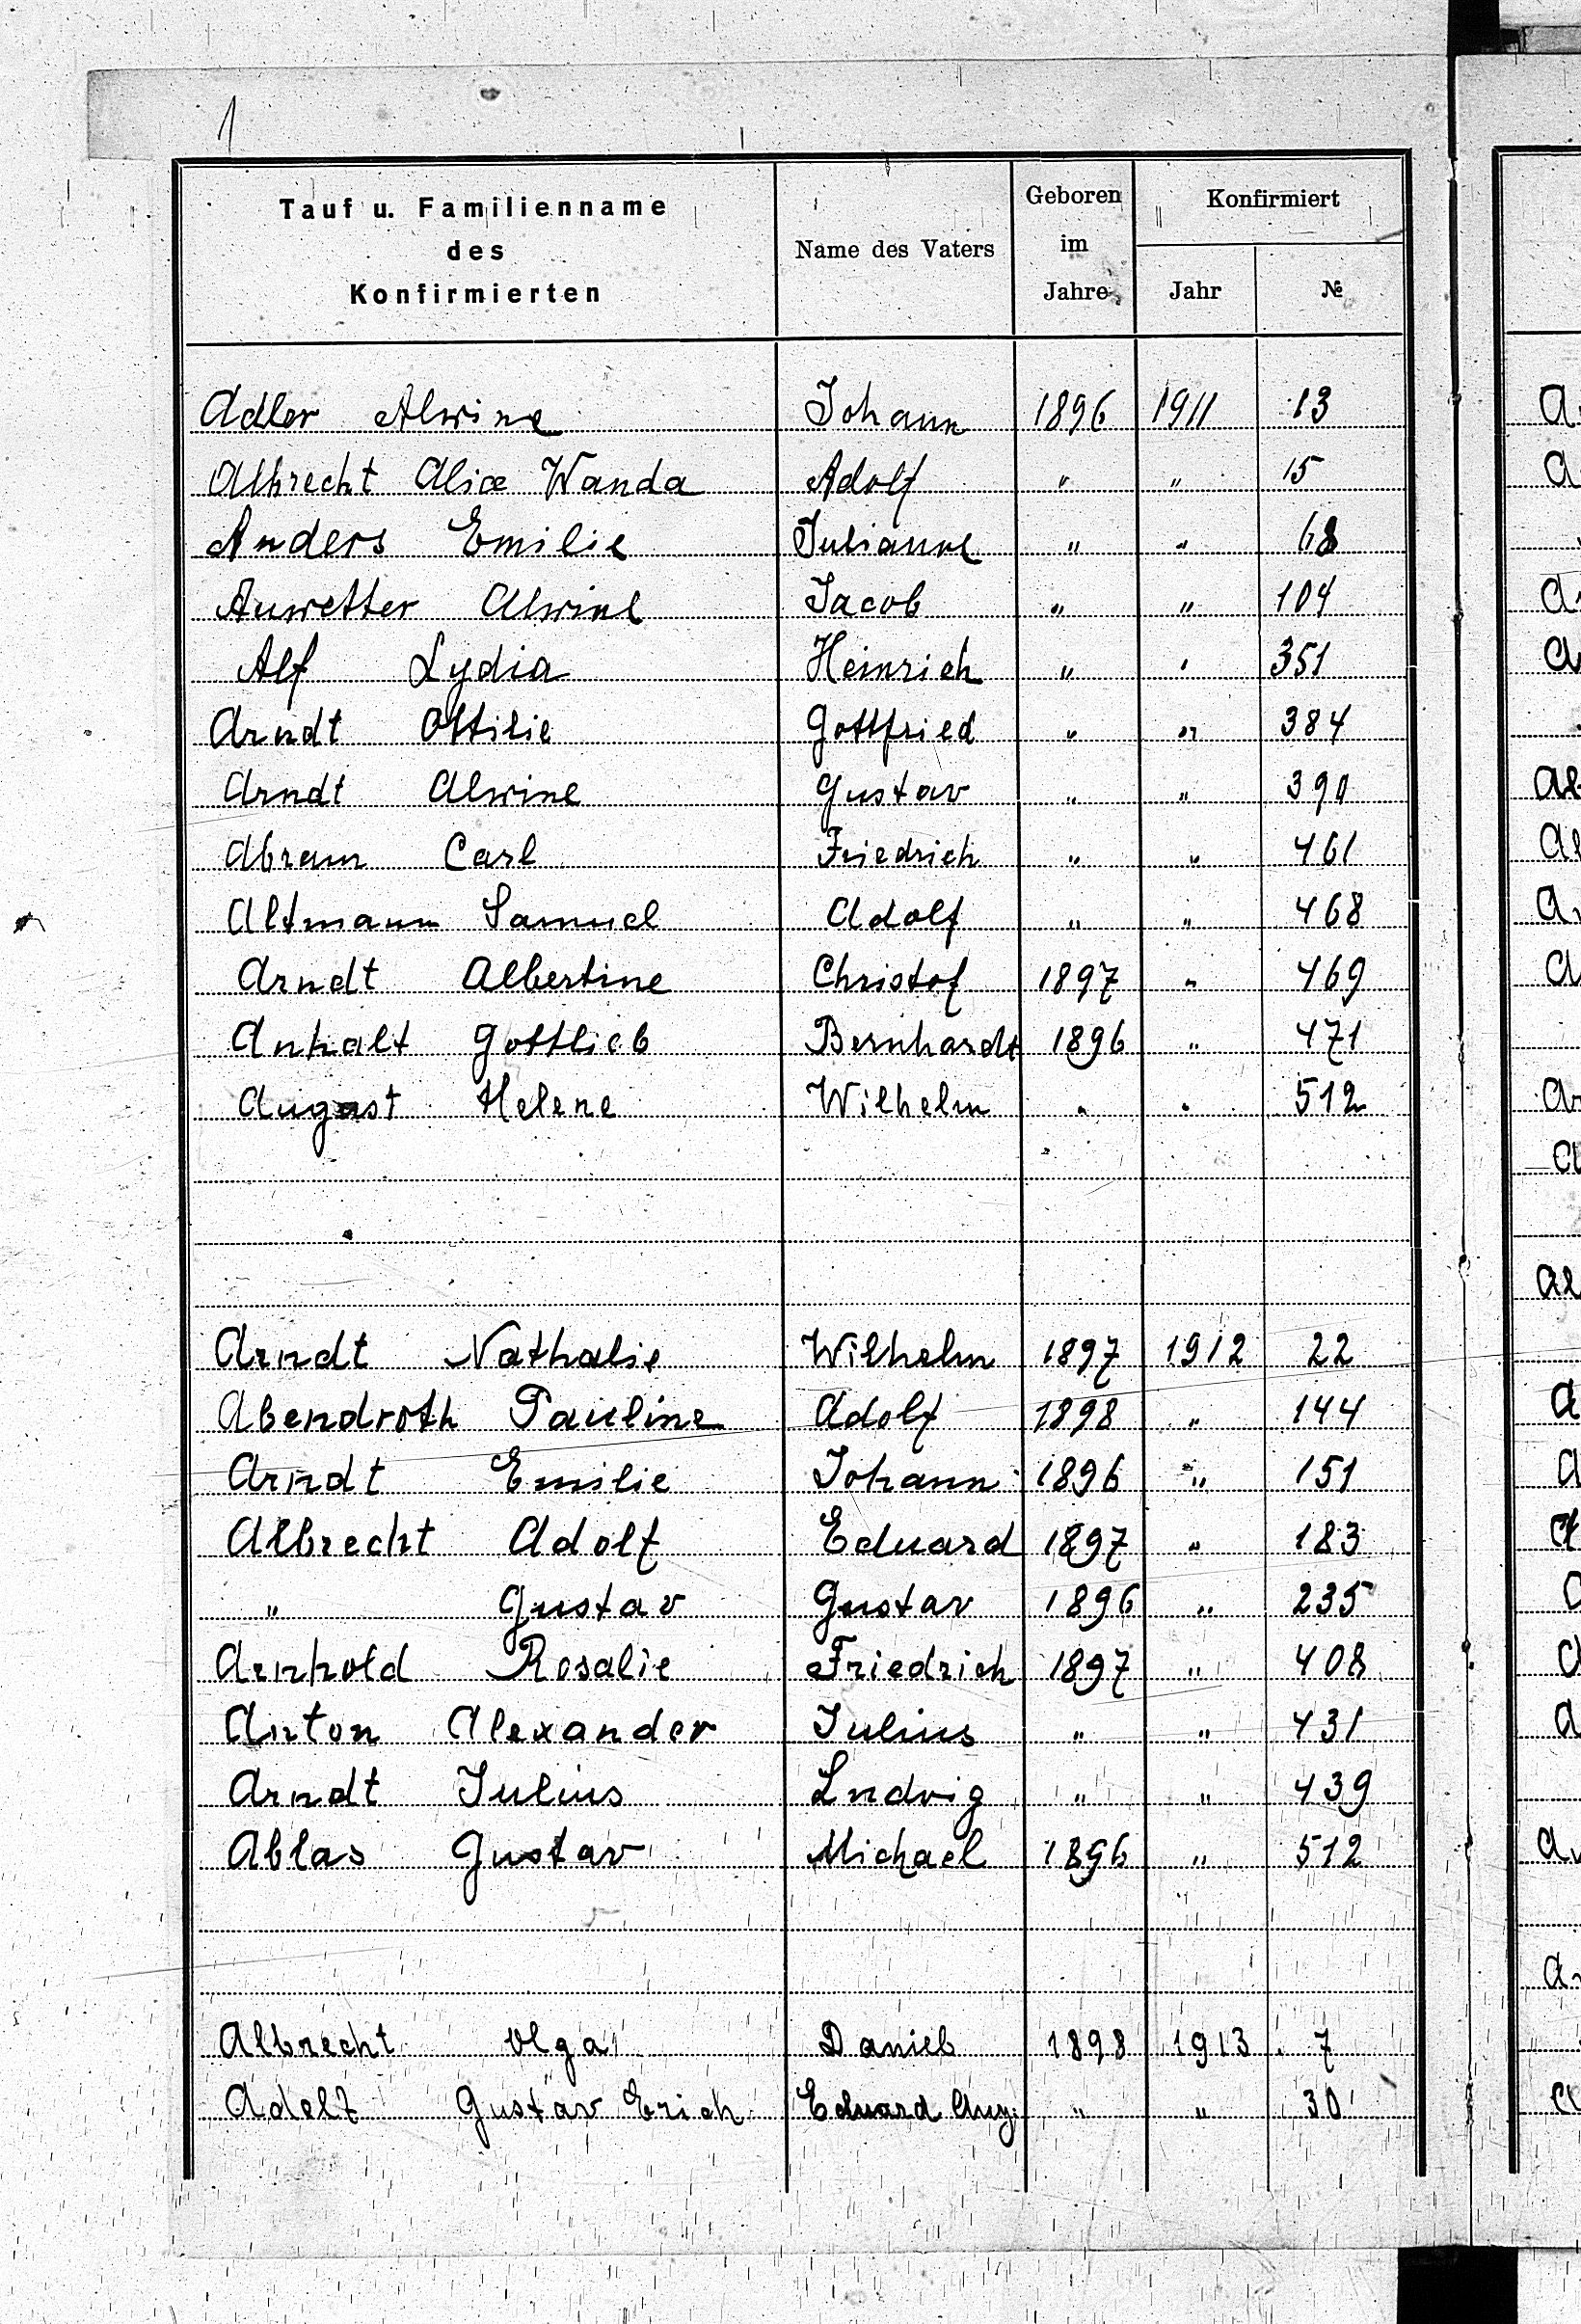 1
Tauf u. Familienname des Konfirmierten | Name des Vaters | Geboren im Jahre | Konfirmiert
Jahr | №
Adler Alwine Johann 1896 1911 13
Albrecht Alice Wanda Adolf " " 15
Anders Emilie Julianne " " 68
Auwetter Alwine Jacob " " 104
Alf Lydia Heinrich " " 351
Arndt Ottilie Gottfried " " 384
Arndt Alwine Gustav " " 390
Abram Carl Friedrich " " 461
Altmann Samuel Adolf " " 468
Arndt Albertine Christof 1897 " 469
Anhalt Gottlieb Bernhardt 1896 " 471
August Helene Wilhelm " " 512
Arndt Nathalie Wilhelm 1897 1912 22
Abendroth Pauline Adolf 1898 " 144
Arndt Emilie Johann 1896 " 151
Albrecht Adolf Eduard 1897 " 183
" Gustav Gustav 1896 " 235
Arnhold Rosalie Friedrich 1897 " 408
Anton Alexander Julius " " 431
Arndt Julius Ludvig " " 439
Ablas Gustav Michael 1896 " 512
Albrecht Olga Daniel 1898 1913 7
Adelt Gustav Erich Eduard Aug. " " 30